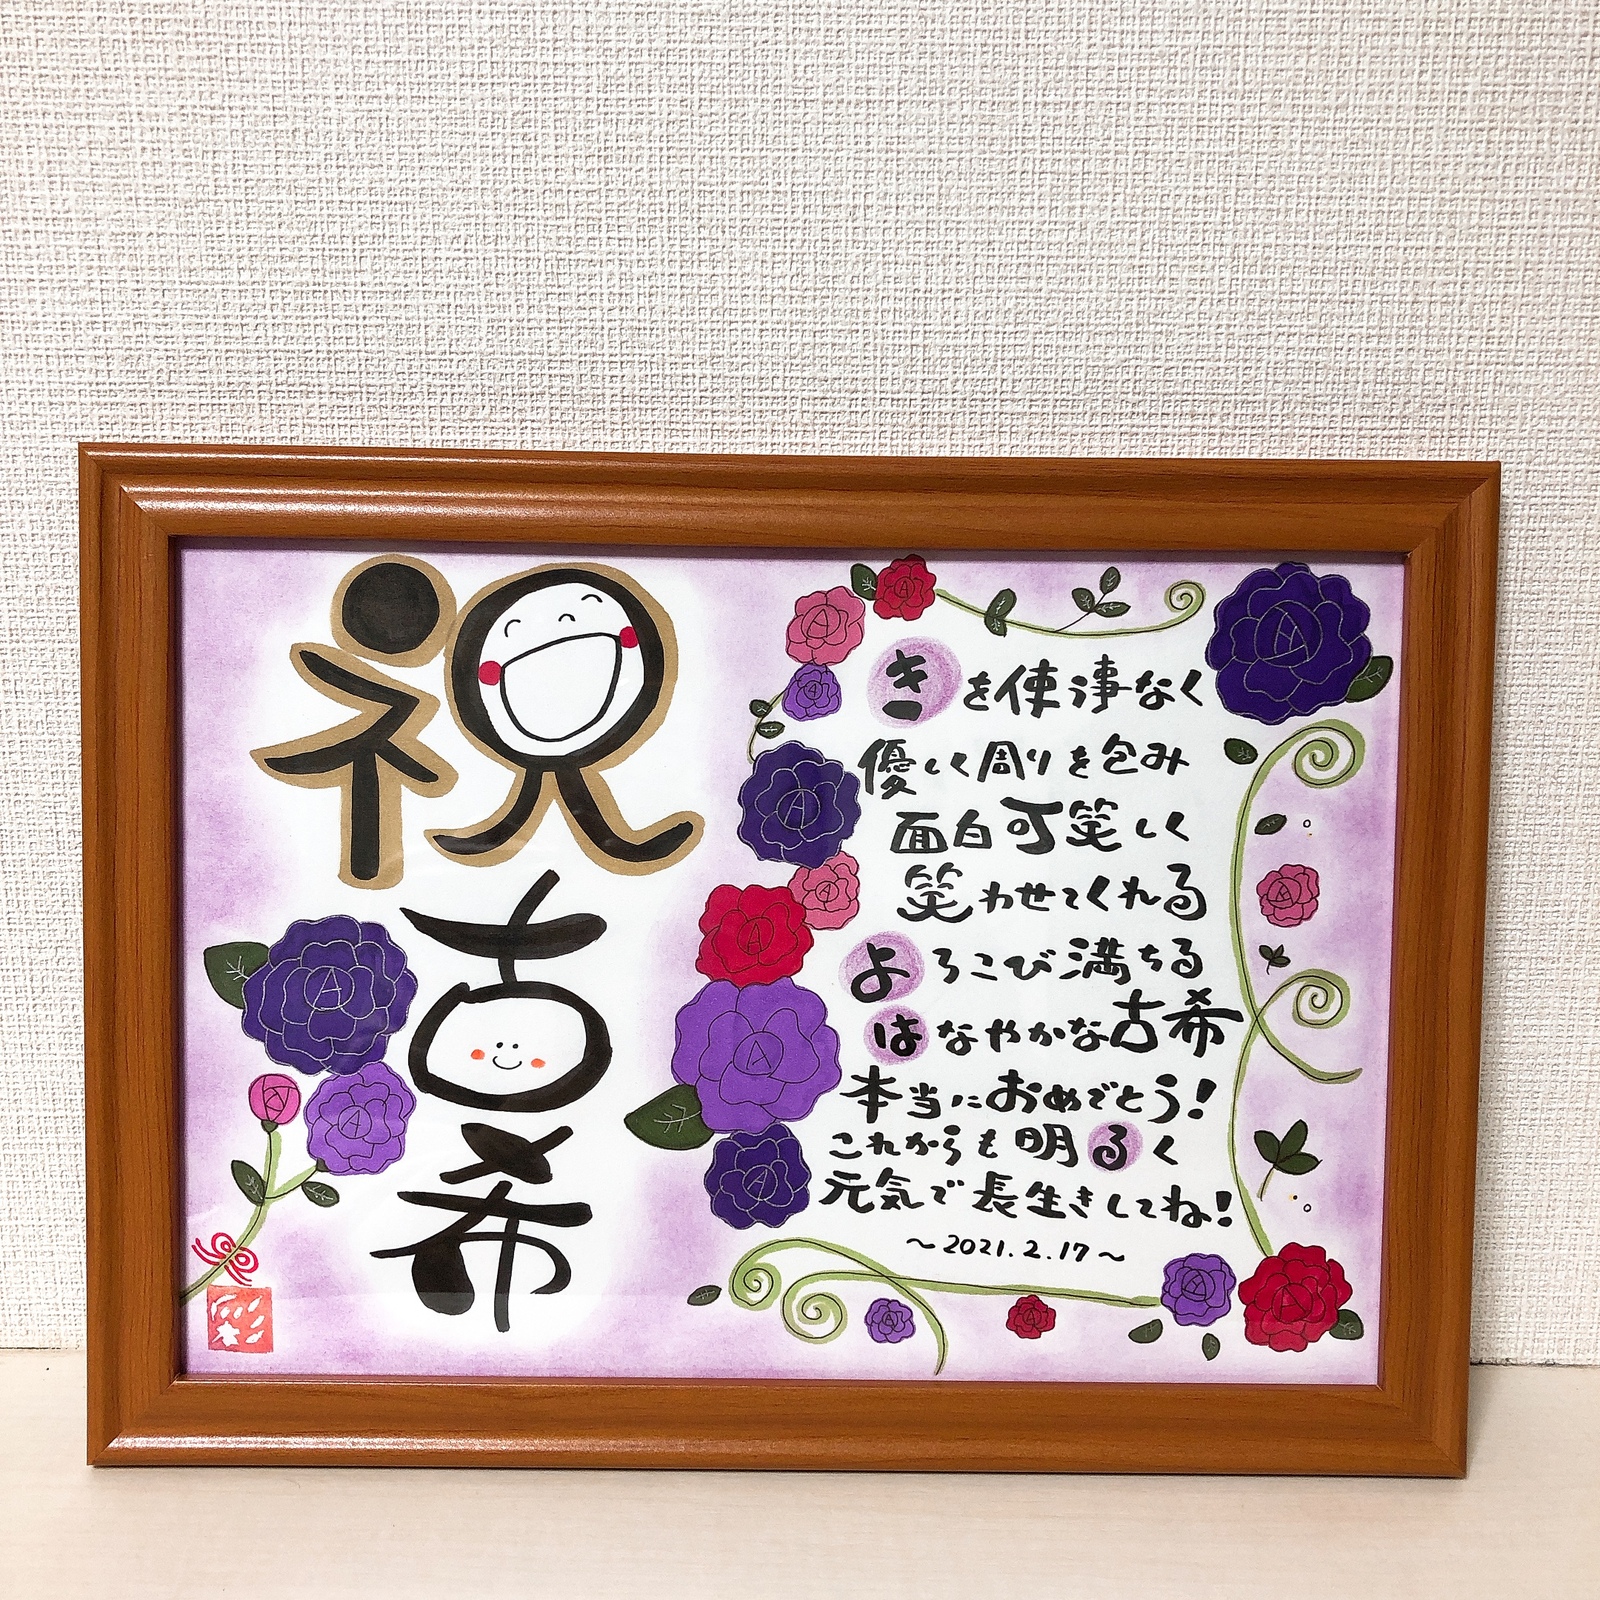 祝
古希
きを使う事なく
優しく周りを包み
面白可笑しく
笑わせてくれる
よろこび満ちる
はなやかな古希
本当におめでとう!
これからも明るく
元気で長生きしてね!
~2021.2.17~